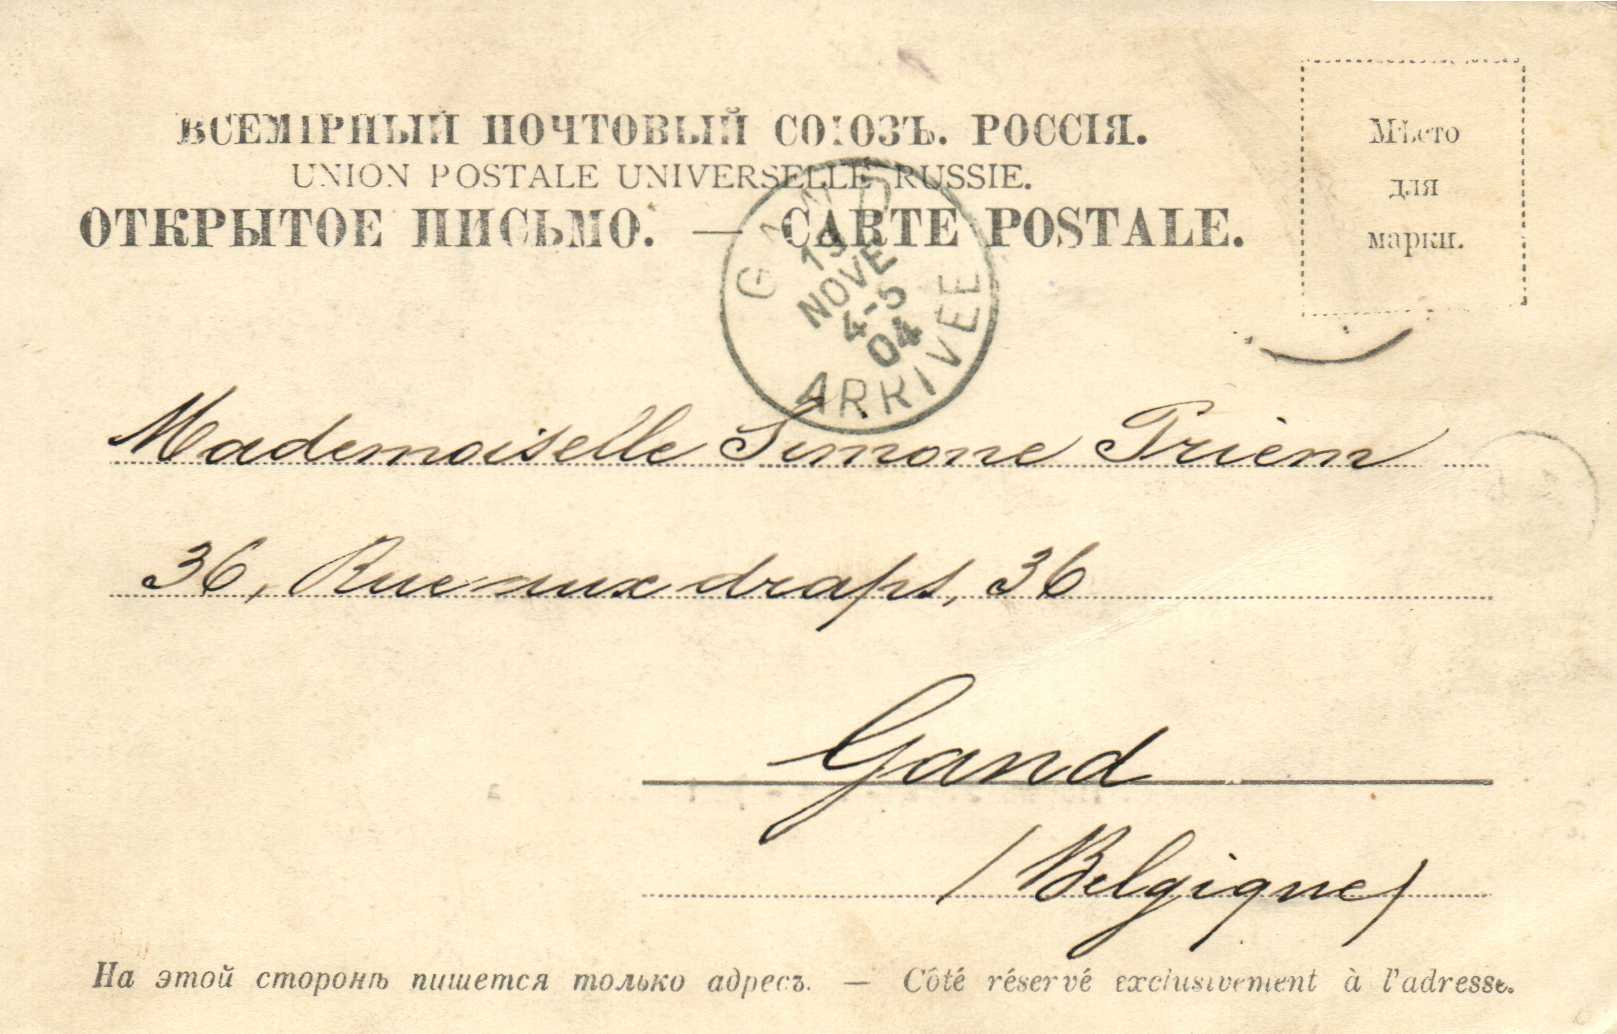 ВСЕМІРНЫЙ ПОЧТОВЫЙ СОЮЗЪ. РОССІЯ.
UNION POSTALE UNIVERSELLE RUSSIE.
ОТКРЫТОЕ ПИСЬМО. — CARTE POSTALE.
Мѣсто
для
марки.
GAND
19
NOVE
4-5
04
ARRIVÉE
Mademoiselle Simone Priem
36, Rue aux draps, 36
Gand
(Belgique)
На этой сторонѣ пишется только адресъ. — Côté réservé exclusivement à l'adresse.